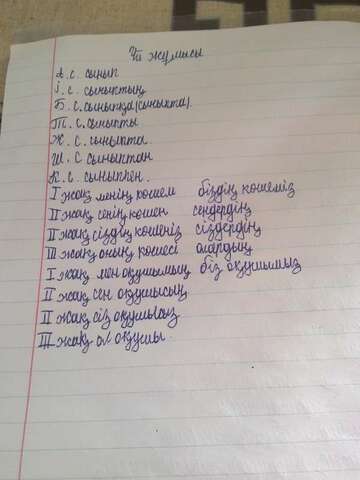 Үй жұмысы
А. с. сынып
І. с. сыныптың
Б. с. сыныпқа (сыныпта).
Т. с. сыныпты
Ж. с. сыныпта
Ш. с сыныптан
К. с. сыныппен.
I жақ менің көшем біздің көшеміз
II жақ сенің көшең сендердің
II жақ сіздің көшеңіз сіздердің
III жақ оның көшесі олардың
I жақ мен оқушымын біз оқушымыз
II жақ сен оқушысың
II жақ сіз оқушысыз
III жақ ол оқушы.